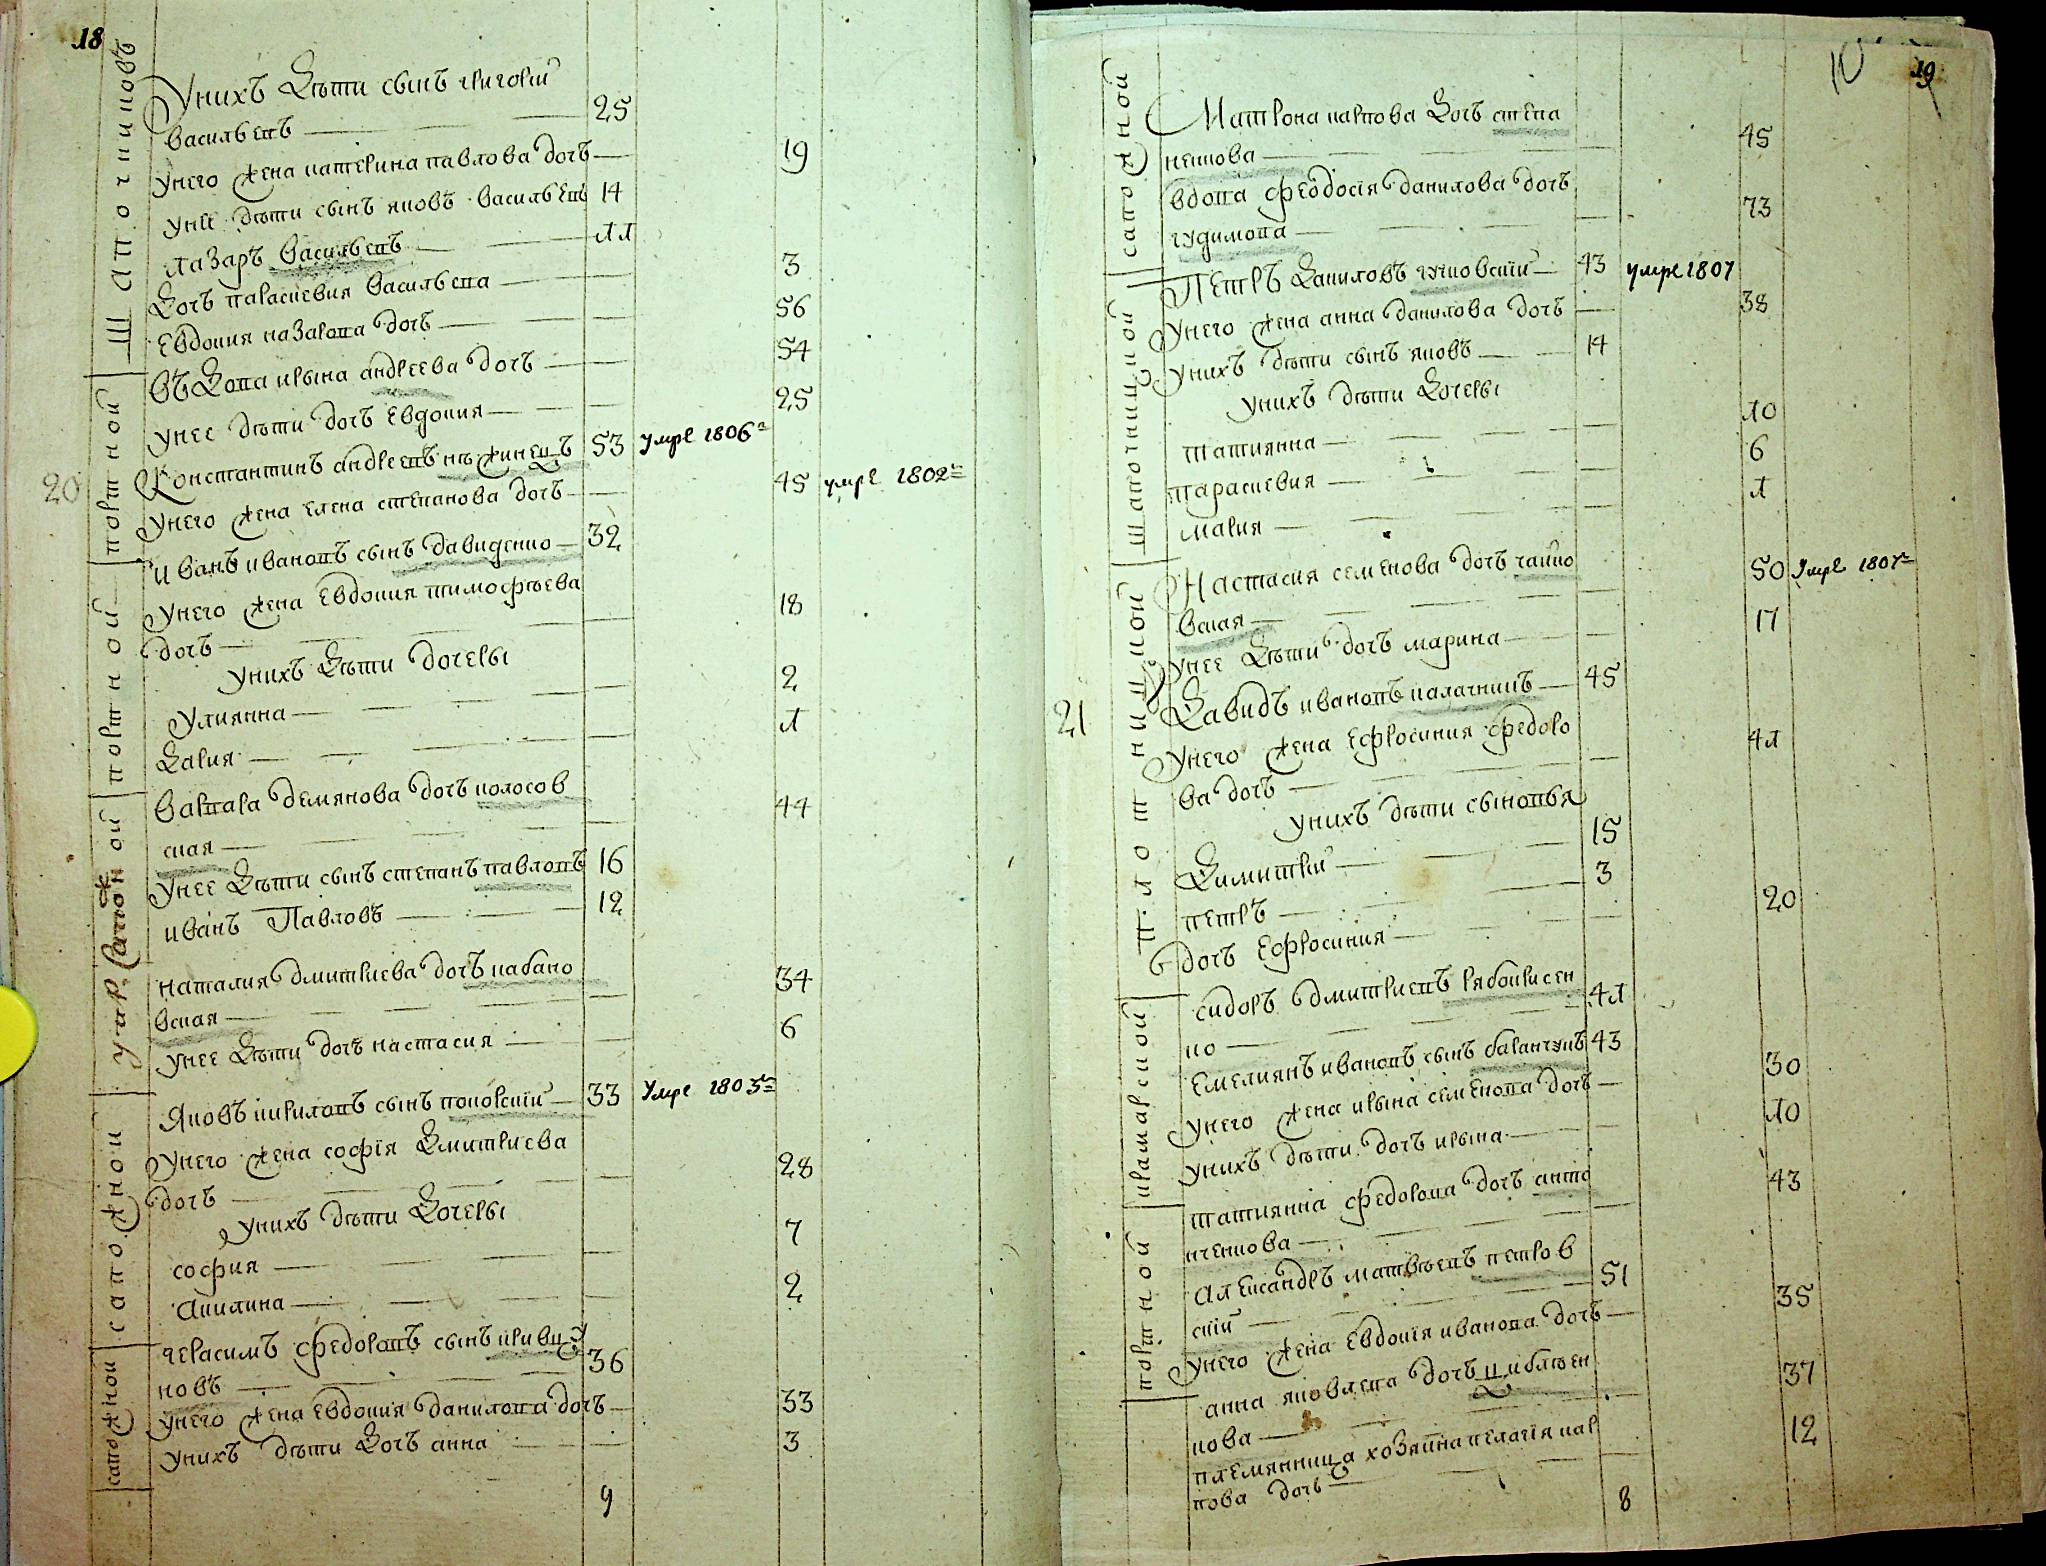 18
Шапошниковъ
унихъ дѣти сынъ григорій
васильевъ — 25
унего жена катерина павлова дочъ — 19
унеи дѣти сынъ яковъ васильевъ 14
лазаръ васильевъ — 11
дочъ параскевия васильева — 3
евдокия назарова дочъ — 56
портной
въдова ирина андреева дочъ — 54
унее дѣти дочъ евдокия — 25
20
константинъ андреевъ нѣжинецъ 53 умре 1806г
унего жена елена степанова дочъ — 45 умре 1802г
портной
иванъ ивановъ сынъ давиденко — 32
унего жена евдокия тимофѣева
дочъ — 18
унихъ дѣти дочеры
улиянна — 2
дария — 1
варвара демянова дочъ колосов
ская — 44
унее дѣти сынъ степанъ павловъ 16
иванъ павловъ — 12
наталия дмитриева дочъ кабано
вская — 34
унее дѣти дочъ настасия — 6
сапожной
яковъ кириловъ сынъ покорскій — 33 умре 1803г
унего жена софія дмитриева
дочъ — 28
унихъ дѣти дочеры
софия — 7
акилина — 2
сапожной
герасимъ федоровъ сынъ кривцу
новъ — 36
унего жена евдокия данилова дочъ — 33
унихъ дѣти дочъ анна 3
9
19
10
сапожной
матрона карпова дочъ степа
ненкова — 45
вдова феодосія данилова дочъ
гудимова — 73
шапочницкой
петръ даниловъ гуковский — 43 умре 1807
унего жена анна данилова дочъ — 38
унихъ дѣти сынъ яковъ — 14
унихъ дѣти дочеры
татиянна — 10
параскевия — 6
мария — 1
плотницкой
настасия семенова дочъ чайко
вская — 50 умре 1807г
унее дѣти дочъ марина — 17
21
давидъ ивановъ калачникъ — 45
унего жена ефросиния федоро
ва дочъ — 41
унихъ дѣти сыновья
димитрій — 15
петръ — 3
дочъ ефросиния — 20
крамарской
сидоръ дмитриевъ рябокисен
ко — 41
емелиянъ ивановъ сынъ баранчукъ 43
унего жена ирина семенова дочъ — 30
унихъ дѣти дочъ ирина — 10
портной
татиянна федорова дочъ анто
нченкова — 43
александръ матвѣевъ петров
скій — 51
унего жена евдокія иванова дочъ — 35
анна яковлева дочъ цибілѣен
кова — 37
племянница хозяина пелагія кар
пова дочъ — 12
8